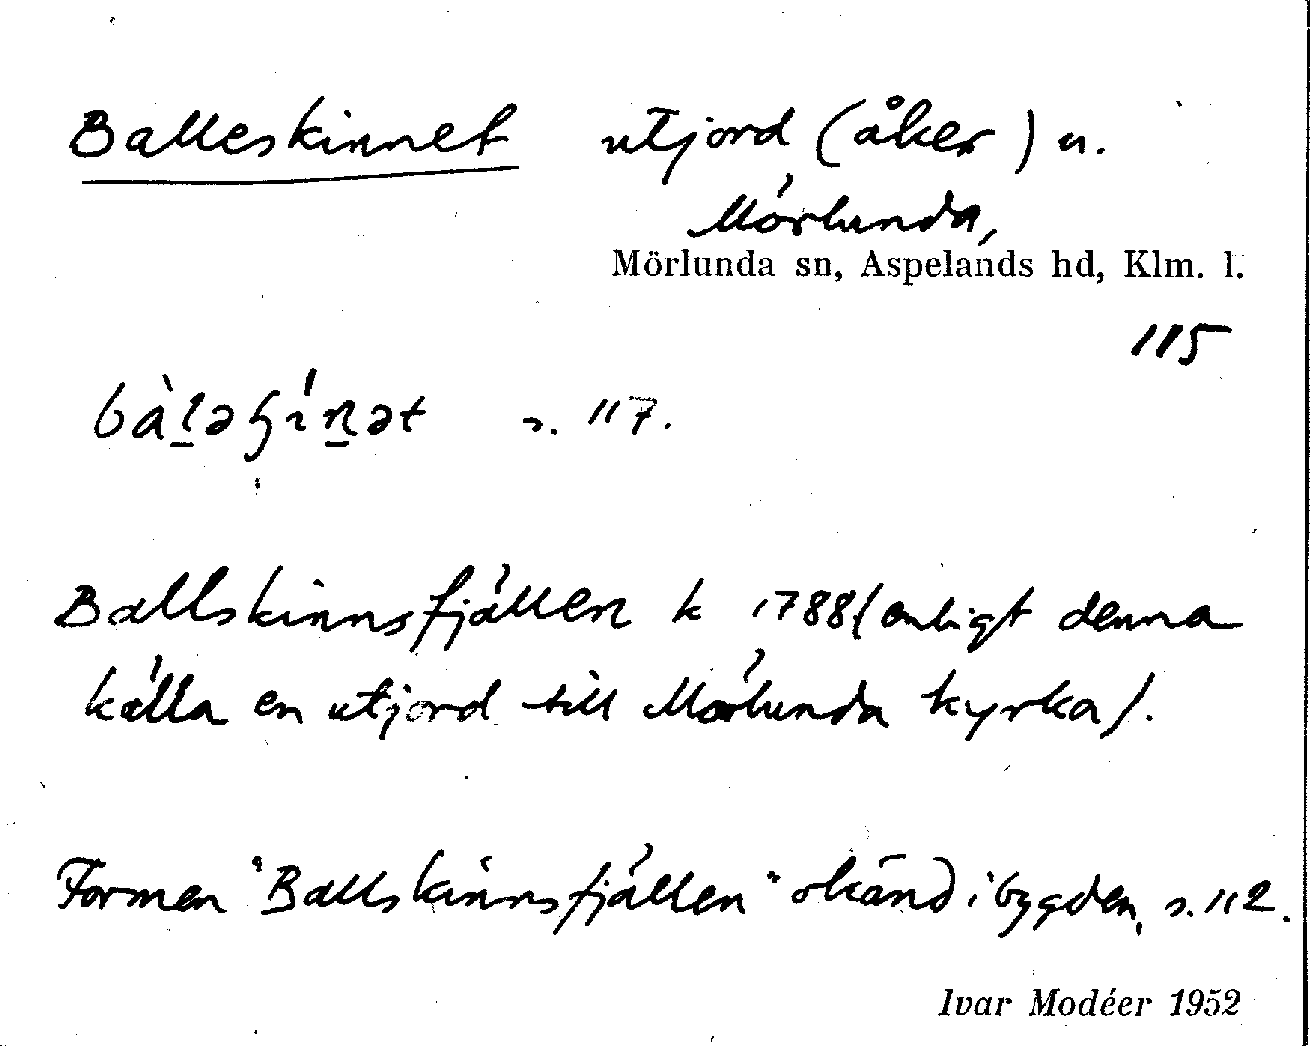 Balleskinnet utjord (åker) u.
Mörlunda,
Mörlunda sn, Aspelands hd, Klm. l.
115
bàl̠əɧín̠ət s. 117.
Ballskinnsfjällen k 1788 (enligt denna
källa en utjord till Mörlunda kyrka).
Formen "Ballskinnsfjällen" okänd i bygden, s. 112.
Ivar Modéer 1952